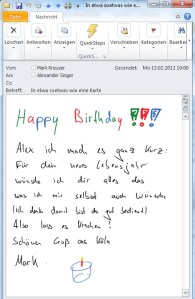 In etwa soetwas wie e...
Datei
Nachricht
Löschen
Antworten
Anzeigen
QuickSteps
Verschieben
Kategorien
Zoom
QuickS...
Zoom
Von:
Mark Kreuzer
Gesendet: Mo 13.02.2012 10:00
An:
Alexander Singer
Cc:
Betreff:
In etwa soetwas wie eine Karte
Happy Birthday !!!
Alex ich mach es ganz kurz:
Für dein neues Lebensjahr
wünsche ich dir alles das
was ich mir selbst auch wünsche
(ich denk damit bist du gut bedient)
Also lass es krachen!
Schönen Gruß aus Köln
Mark